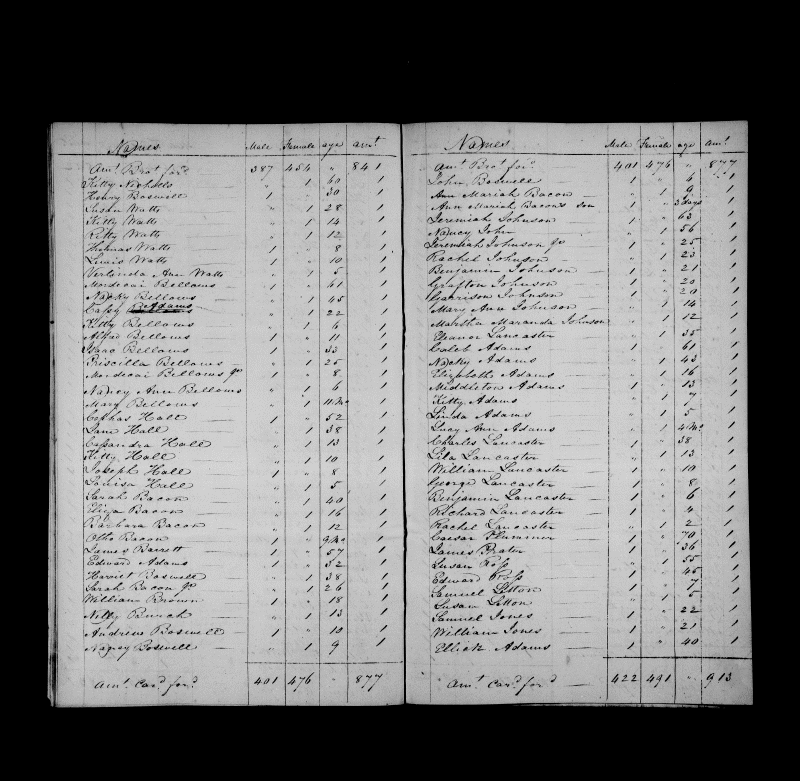 Names Male Female age Amt.
Amt. Brot. ford. 387 454 " 841
Kitty Nicholls " 1 40 1
Henry Boswell 1 " 30 1
Susan Watts " 1 28 1
Kitty Watts " 1 14 1
Kitty Watts " 1 12 1
Thomas Watts 1 " 8 1
Lewis Watts 1 " 10 1
Verlinda Ann Watts " 1 5 1
Mordecai Bellows 1 " 61 1
Nacky Bellows " 1 45 1
Cassy Adams " 1 22 1
Kitty Bellows " 1 6 1
Alfred Bellows 1 " 11 1
Isaac Bellows 1 " 33 1
Priscilla Bellows " 1 25 1
Mordecai Bellows Jr. 1 " 8 1
Nancy Ann Bellows " 1 6 1
Mary Bellows " 1 11 Mo 1
Cephas Hall 1 " 52 1
Jane Hall " 1 38 1
Cassandra Hall " 1 13 1
Kitty Hall " 1 10 1
Joseph Hall 1 " 8 1
Louisa Hall " 1 5 1
Sarah Bacon " 1 40 1
Eliza Bacon " 1 16 1
Barbara Bacon " 1 12 1
Otho Bacon 1 " 9 Mo 1
James Barrett 1 " 57 1
Edward Adams 1 " 32 1
Harriet Boswell " 1 38 1
Sarah Bacon Jr. " 1 26 1
William Brown 1 " 18 1
Nelly Burch " 1 13 1
Andrew Boswell 1 " 13 1
Nancy Boswell " 1 9 1
Amt. Card. ford. 401 476 " 877
Names Male Female age Amt.
Amt. Brot. ford. 401 476 " 877
John Boswell 1 " 6 1
Ann Mariah Bacon " 1 9 1
Ann Mariah Bacons son 1 " 3 days 1
Jeremiah Johnson 1 " 63 1
Nancy John " 1 56 1
Jeremiah Johnson Jr 1 " 25 1
Rachel Johnson " 1 23 1
Benjamin Johnson 1 " 21 1
Grafton Johnson 1 " 20 1
Garrison Johnson 1 " 20 1
Mary Ann Johnson " 1 14 1
Martha Maranda Johnson " 1 12 1
Eleanor Lancaster " 1 35 1
Caleb Adams 1 " 61 1
Nacky Adams " 1 43 1
Elizabeth Adams " 1 16 1
Middleton Adams 1 " 13 1
Kitty Adams " 1 7 1
Linda Adams " 1 5 1
Lucy Ann Adams " 1 4 Mo 1
Charles Lancaster 1 " 38 1
Lila Lancaster " 1 13 1
William Lancaster 1 " 10 1
George Lancaster 1 " 8 1
Benjamin Lancaster 1 " 6 1
Richard Lancaster 1 " 4 1
Rachel Lancaster " 1 2 1
Caesar Plummer 1 " 70 1
James Prater 1 " 36 1
Susan Ross " 1 55 1
Edward Ross 1 " 45 1
Samuel Letton 1 " 7 1
Susan Letton " 1 5 1
Samuel Jones 1 " 22 1
William Jones 1 " 21 1
Ellick Adams 1 " 40 1
Amt. Card. ford. 422 491 " 913